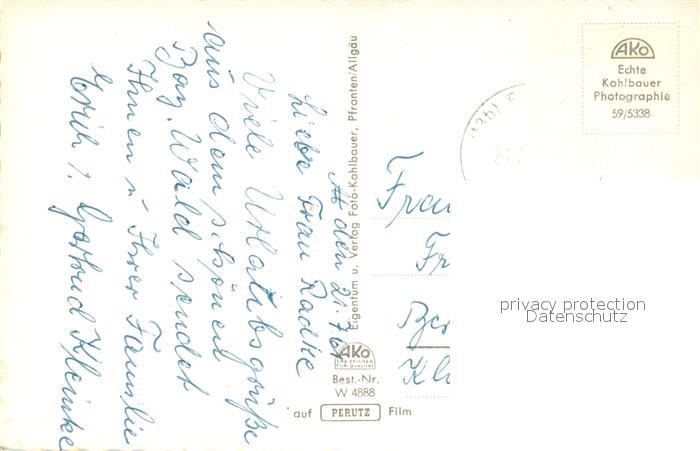 den 21.7.61
Liebe Frau Radtke
Viele Urlaubsgrüße
aus dem schönen
Bay. Wald sendet
Ihnen u Ihrer Familie
Erich u. Gertrud Kleinke
Eigentum u. Verlag Foto-Kohlbauer, Pfronten/Allgäu
AKO
DAS ZEICHEN
FÜR QUALITÄT
Best.-Nr.
W 4888
auf PERUTZ Film
AKO
Echte
Kohlbauer
Photographie
59/5338
Frau
Fr
Ber
Kl
privacy protection
Datenschutz